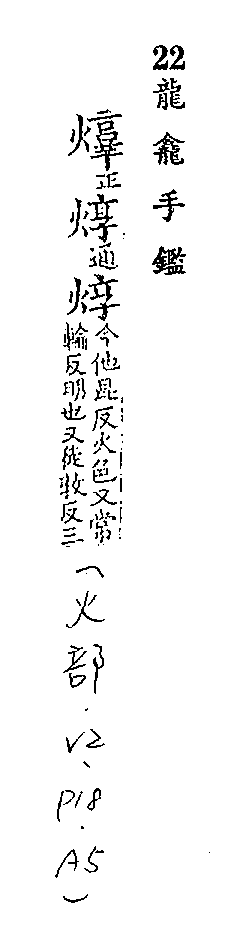 22龍龕手鑑
正焞通焞
今他昆反火色又常
輪反明也又徒敦反三
(火部.V2、P18.A5)